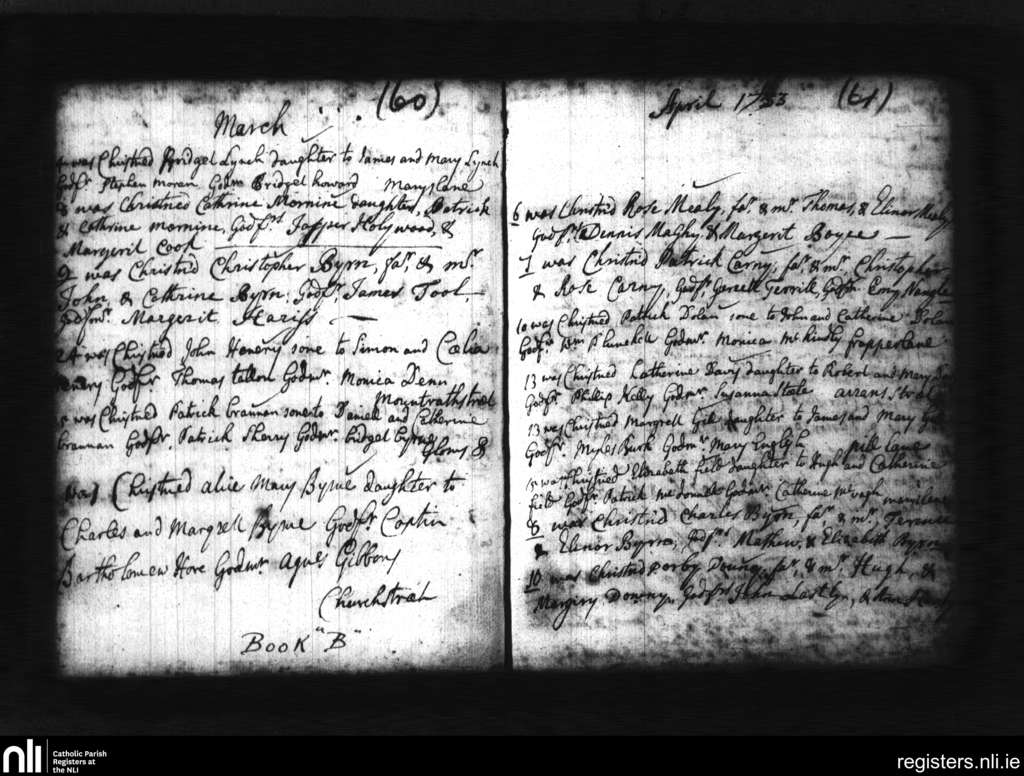 (60)
March
was Christned Bridget Lynch daughter to James and Mary Lynch
Godfr Stephen moran Godm Bridget howard Marys lane
8 was Christned Cathrine Mornine daughter, Patrick
& Cathrine mornine, Godfr Jasper Holywood, &
Margerit Cook
9 was Christnd Christopher Byrn, far, & mr
John, & Cathrine Byrn: Godfr James Tool,
Godmr Margerit Hariss
24 was Christned John Henery sone to Simon and Cælia
Godfr Thomas tallon Godmr Monica Denn
Mountrathstreet
was Christned Patrick brannan sone to Daniell and Catherine
brannan Godfr Patrick Sherry Godmr bridget byrne
was Christned alice Mary Byrne daughter to
Charles and Margrett Byrne Godfr Captin
Bartholomew Hore Godmr Agnes Gibbons
Churchstreet
BOOK "B"
April 1733 (61)
6 was Christnd Rose Mealy, far & mr Thomas, & Elinor Mealy
Godfr Dennis & Margerit Boyce
7 was Christnd Patrick Carny, far & mr Christopher
& Rose Carny, Godfr Gerrill, Godm Nangle
10 was Christned Patrick Dolan sone to John and Catherine Dolan
Godfr Wm Plunckett Godmr Monica
13 was Christned Catherine Davis daughter to Robert and Mary
Godfr Phillip Kelly Godmr Susanna Steele arrans
13 was Christned Margrett Gill daughter to James and Mary Gill
Godfr Myles Burk Godmr Mary English pill lane
15 was Christned Elizabeth field daughter to Hugh and Catherine
field Godfr Patrick Godmr Catherine maryslane
8 was Christnd Charles Byrn, far & mr Terence
& Elinor Byrrn, Godfr Mathew, & Elizabeth Byrrn
10 was Christnd Dorby far, & mr Hugh, &
Margiry Godfr John
nli
Catholic Parish
Registers at
the NLI
registers.nli.ie